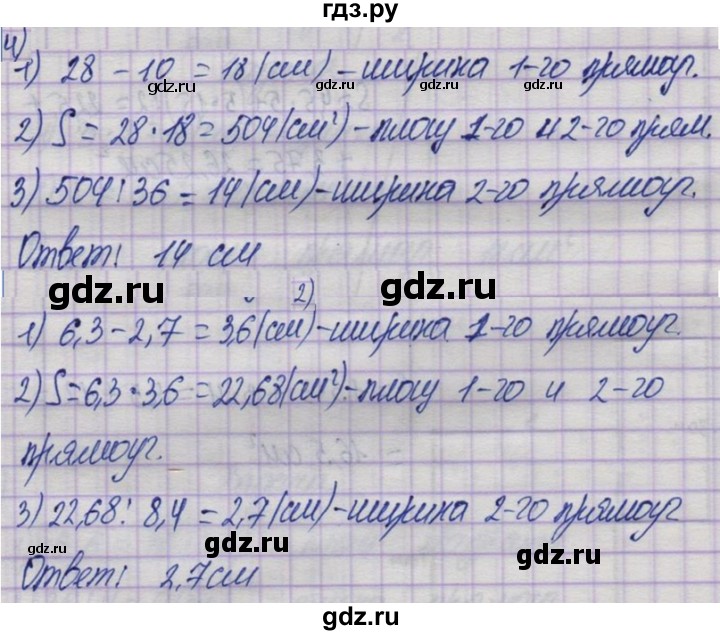 гдз.ру
4)
1) 28 - 10 = 18 (см) - ширина 1-го прямоуг.
gdz.ru gdz.ru gdz.ru
2) S = 28 · 18 = 504 (см²) - площ 1-го и 2-го прям.
3) 504 : 36 = 14 (см) - ширина 2-го прямоуг.
Ответ: 14 см
gdz.ru gdz.ru
2)
1) 6,3 - 2,7 = 3,6 (см) - ширина 1-го прямоуг.
2) S = 6,3 · 3,6 = 22,68 (см²) - площ 1-го и 2-го
прямоуг.
3) 22,68 : 8,4 = 2,7 (см) - ширина 2-го прямоуг
gdz.ru gdz.ru gdz.ru
Ответ: 2,7 см
gdz.ru